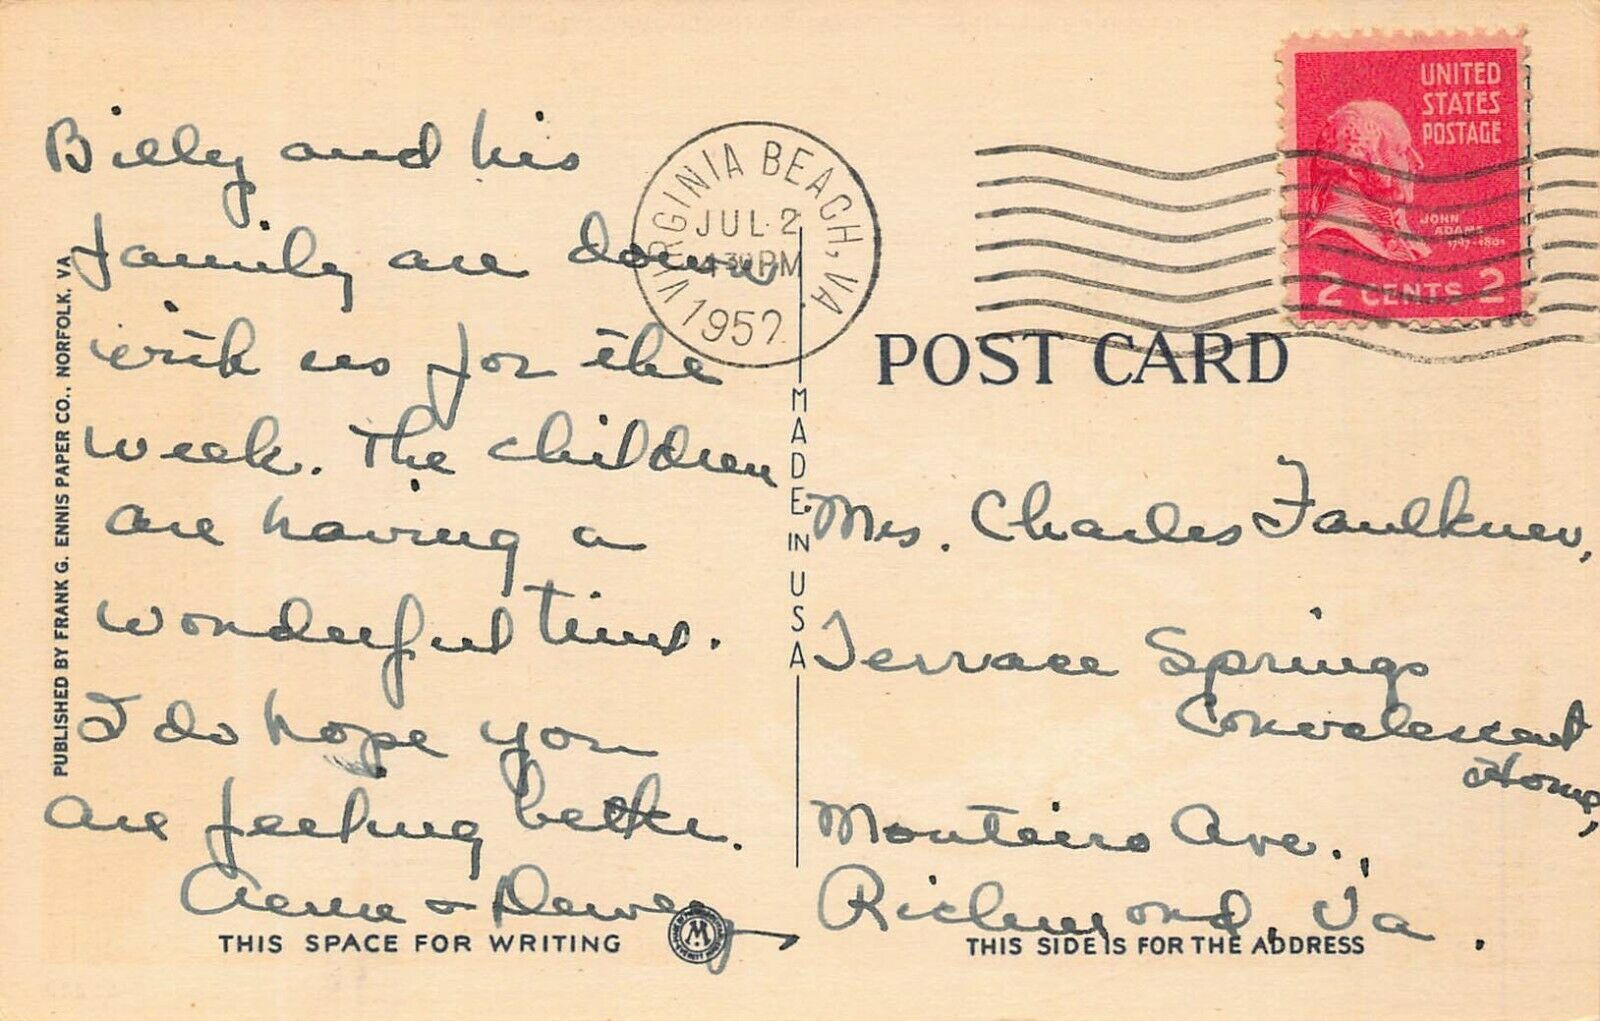 Billy and his
family are down
with us for the
week. The children
are having a
wonderful time.
I do hope you
are feeling better.
& Dewey
THIS SPACE FOR WRITING
PUBLISHED BY FRANK G. ENNIS PAPER CO., NORFOLK, VA.
VIRGINIA BEACH, VA.
JUL 2
430 PM
1952
MADE IN USA
UNITED
STATES
POSTAGE
JOHN
ADAMS
1797-1801
2 CENTS 2
POST CARD
Mrs. Charles Faulkner,
Terrace Springs
Convalescent
Home,
Monteiro Ave.,
Richmond, Va.
THIS SIDE IS FOR THE ADDRESS